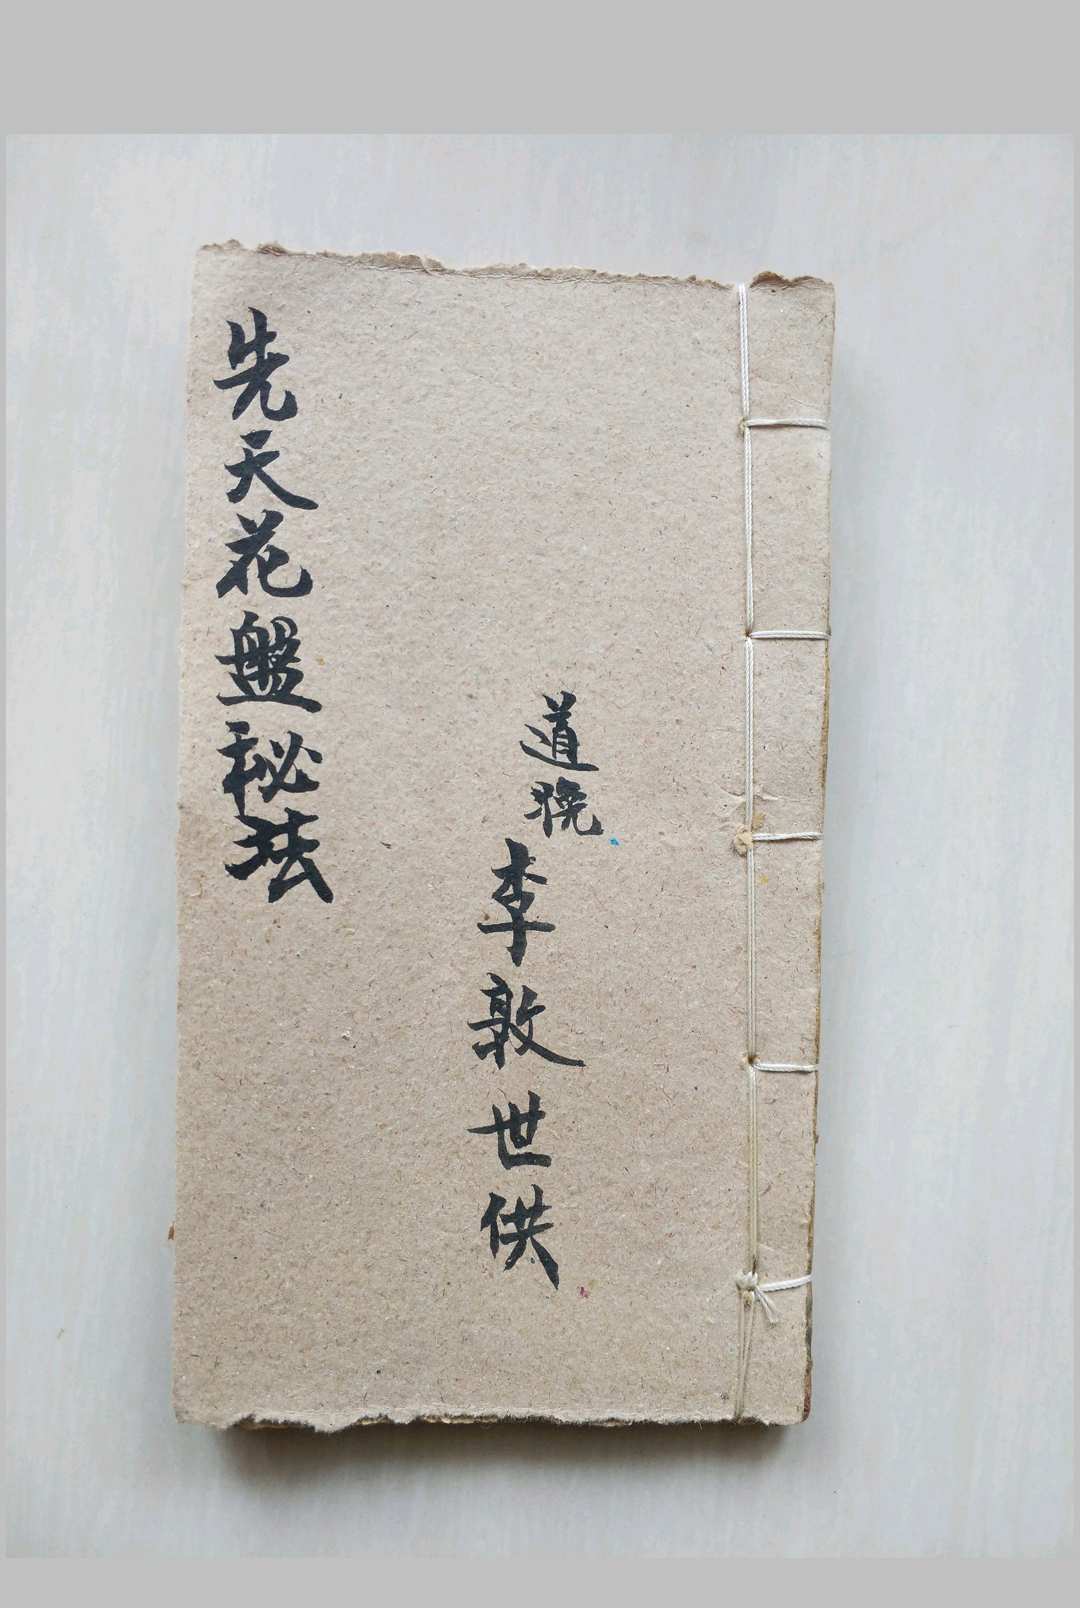 道晚
李敦世供
先天花盤秘法